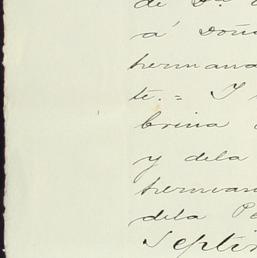 de Dª
á Doña
hermana
te. = Y
brina
y dela
hermana
dela Pe
Septi